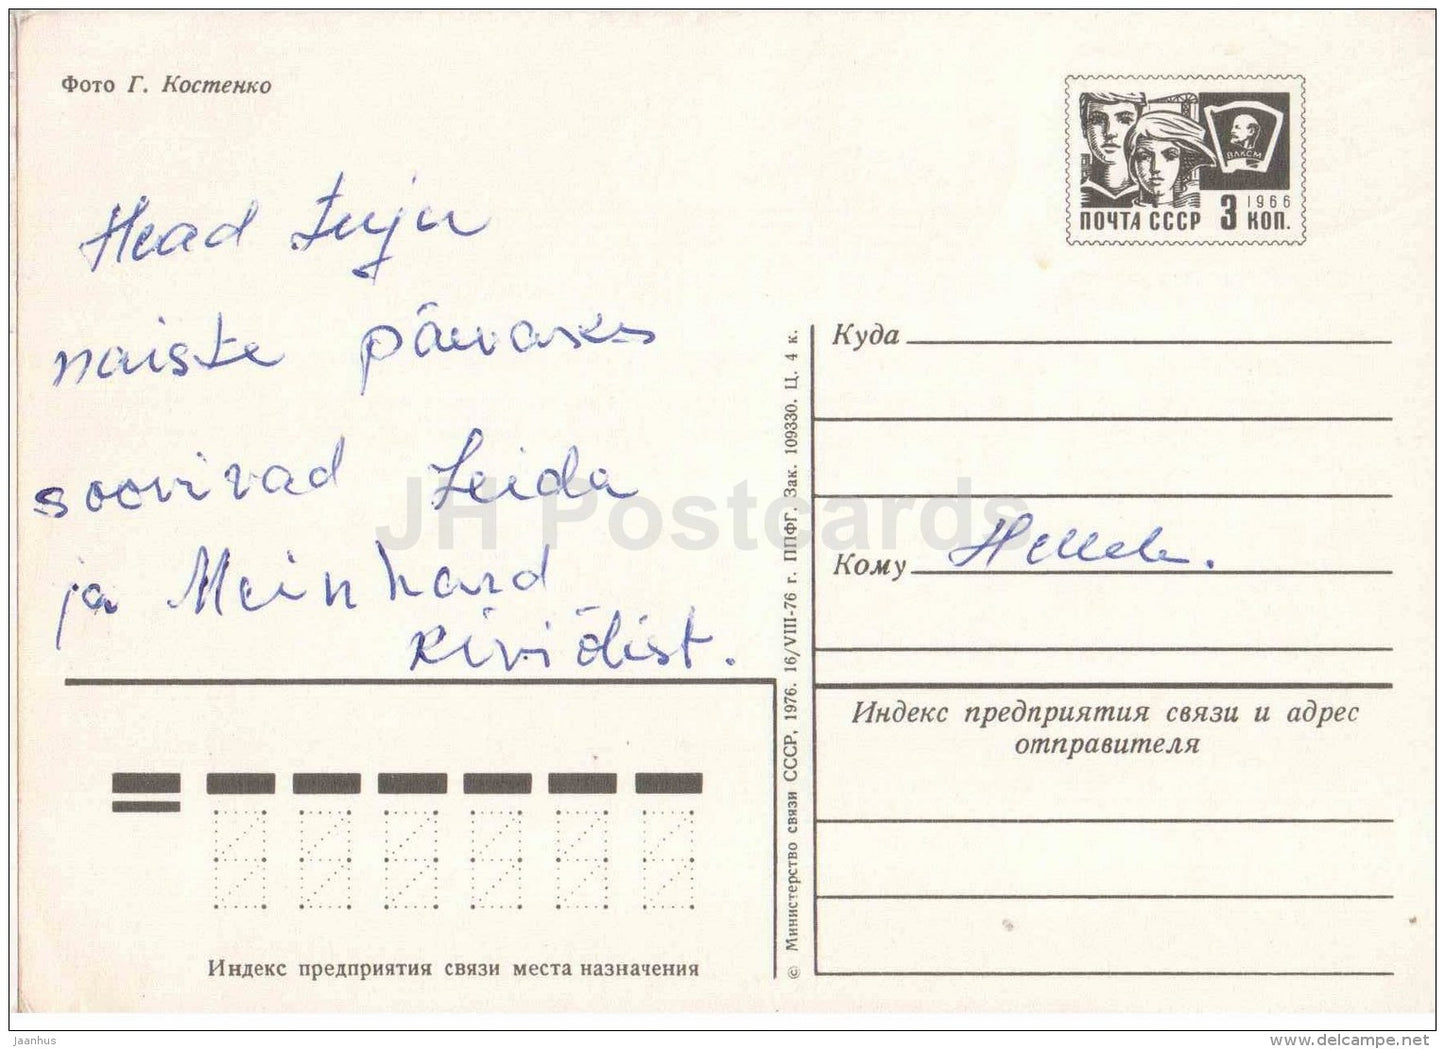 Фото Г. Костенко
ВЛКСМ
1966
ПОЧТА СССР 3 КОП.
Head tuju
naiste päevaks
soovivad Leida
ja Meinhard
Kiviõlist.
Куда
Кому
Индекс предприятия связи и адрес
отправителя
© Министерство связи СССР, 1976. 16/VIII-76 г. ППФГ. Зак. 109330. Ц. 4 к.
Индекс предприятия связи места назначения
JH Postcards
jaanhus
www.delcampe.net